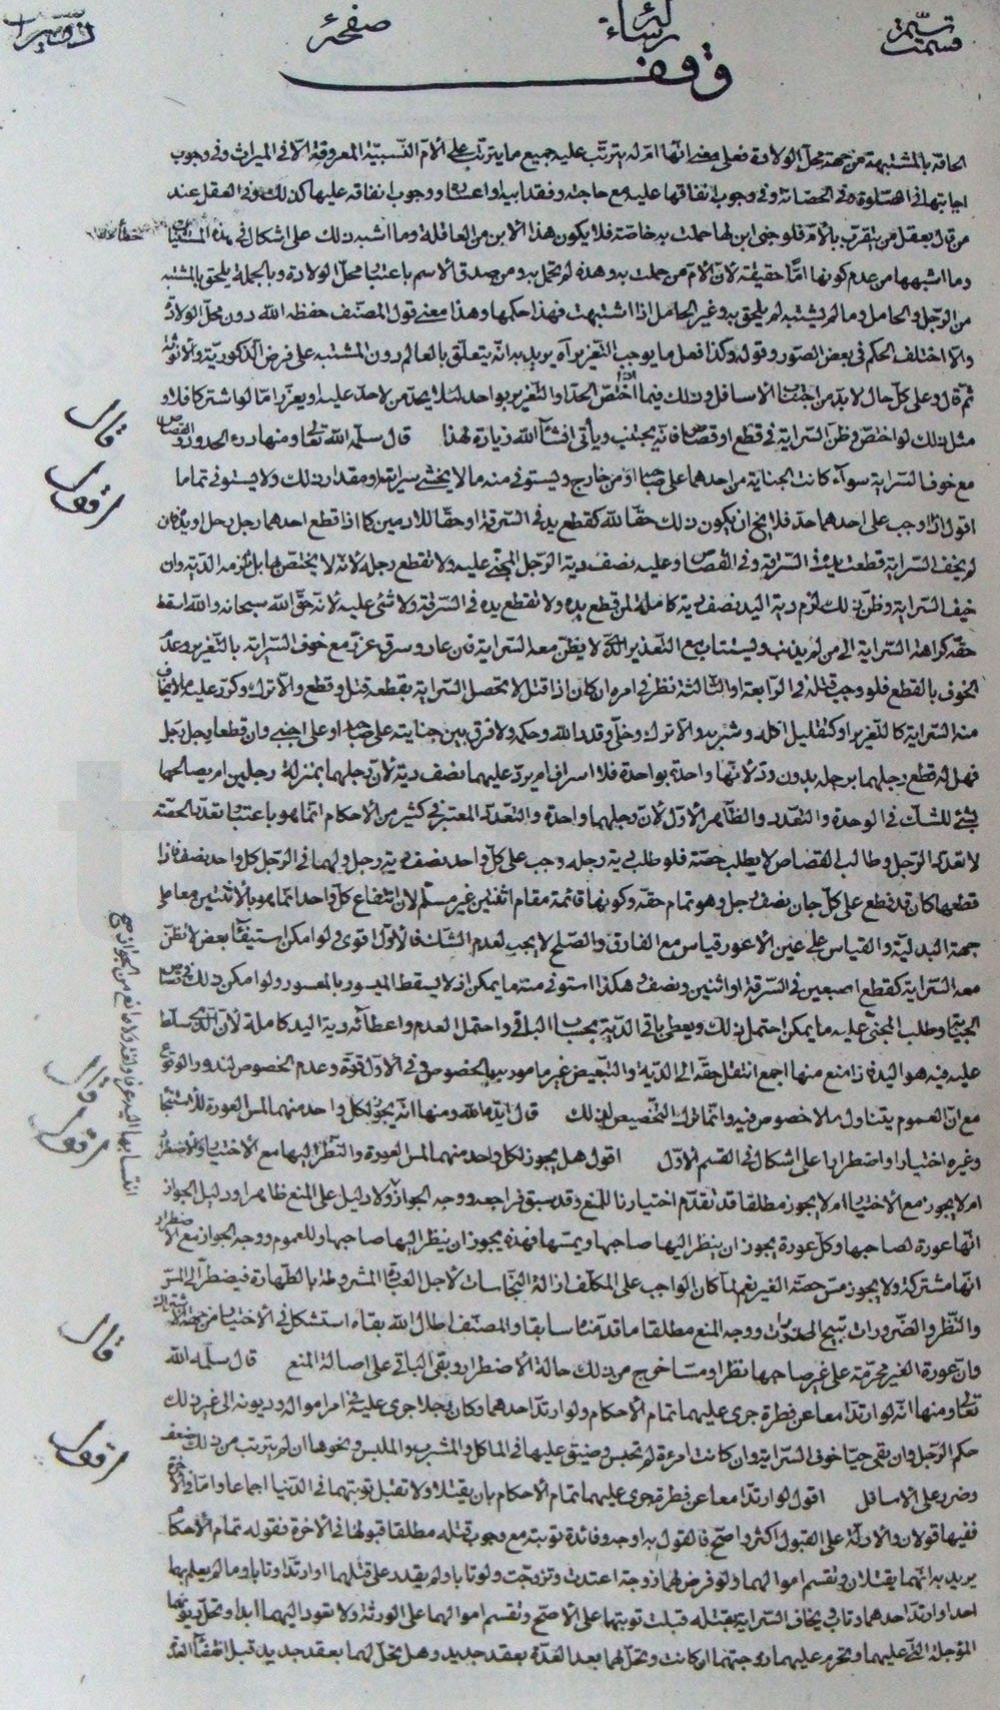 قسمت
رسالة
صفحة
وقف
الحاقه بالمشتبهة من جهة محل الولادة فعلى معنى انها ام له يترتب عليه جميع ما يترتب على الام النسبية المعروفة الا في الميراث وفي وجوب
اجابتها في الصلوة وفي الحضانة وفي وجوب انفاقها عليه مع حاجته وفقد ابيه او اعساره ووجوب انفاقه عليها كذلك وفي العقل عند
من قال يعقل من يتقرب بالام فلو جنى ابن لها حملت به خاصة فلا يكون هذا الابن من العاقلة وما اشبه ذلك على اشكال في هذه
وما اشبهها من عدم كونها اما حقيقة لان الام من حملت به وهذه لم تحمل به ومن صدق الاسم باعتبار محل الولادة وبالجملة يلحق بالمشتبه
من الرجل والحامل وما لم يشتبه لم يلحق به وغير الحامل اذا اشتبهت فهذا حكمها وهذا معنى قول المصنف حفظه الله دون محل الولادة
والا اختلف الحكم في بعض الصور وقوله وكذا فعل ما يوجب التعزير آه يريد به انه يتعلق بالعالم دون المشتبه على فرض الذكورية والانوثة
ثم قال وعلى كل حال لا بد من اجتناب الاسافل وذلك فيما اذا اختص الحد او التعزير بواحد لئلا يحد من لا حد عليه او يعزر اما لو اشتركا فلا و
مثل ذلك لو اختص وظن السراية في قطع او قصاص فانه يجتنب ويأتي انشاء الله زيادة لهذا قال سلمه الله تعالى ومنها درء الحدود والقصاص
قال
مع خوف السراية سواء كانت الجناية من احدهما على صاحبه او من خارج ويستوفى منه ما لا يخشى سرايته او مقدار ذلك ولا يستوفى تماما
اقول
اقول اذا وجب على احدهما حد فلا يخ ان يكون ذلك حقا لله كقطع يده في السرقة او حقا للادميين كما اذا قطع احدهما رجل رجل او يده فان
لم يخف السراية قطعت يده في السرقة وفي القصاص وعليه نصف دية الرجل المجني عليه ولا تقطع رجله لانه لا يختص بها بل تلزمه الدية وان
خيف السراية وظن ذلك لزم دية اليد نصف دية كاملة لمن قطع يده ولا تقطع يده في السرقة ولا شئ عليه لانه حق الله سبحانه والله اسقط
حقه كراهة السراية الى من لم يذنب ويستتاب مع التعذير الذي لا يظن معه السراية فان عاد وسرق عزر مع خوف السراية بالتعزير وعدم
الخوف بالقطع فلو وجب قتله في الرابعة او الثالثة نظر في امره ان كان اذا قتل لا تحصل السراية بقطعه قتل وقطع والا ترك وكرر عليه ما لا يخاف
منه السراية كالتعزير او كتقليل اكله وشربه والا ترك وخلى وقدر الله وحكمه ولا فرق بين جنايته على صاحبه او على اجنبي وان قطعا رجل رجل
فهل له قطع رجلهما برجله بدون رد لانها واحدة بواحدة فلا اسراف ام يرد عليهما نصف دية لان رجلهما بمنزلة رجلين ام يصالحهما
بشئ للشك في الوحدة والتعدد والظاهر الاول لان رجلهما واحدة والتعدد المعتبر في كثير من الاحكام انما هو باعتبار تعدد الحصة
لا تعدد الرجل وطالب القصاص لا يطلب حصة فلو طلب دية رجله وجب على كل واحد نصف دية رجل ولهما في الرجل كل واحد نصف فاذا
قطعها كان قد قطع على كل جان نصف رجل وهو تمام حقه وكونها قائمة مقام اثنتين غير مسلم لان انتفاع كل واحد انما هو بالاثنتين معا على
جهة البدلية والقياس على عين الاعور قياس مع الفارق والصلح لا يجب لعدم الشك فالاول اقوى ولو امكن استيفاء بعض لا تظن
معه السراية كقطع اصبعين في السرقة او اثنين ونصف وهكذا استوفى منه ما يمكن اذ لا يسقط الميسور بالمعسور ولو امكن ذلك في قصاص
الجناية وطلب المجني عليه ما يمكن احتمل ذلك ويعطى باقي الدية بحساب الباقي واحتمل العدم واعطائه دية اليد كاملة لان الذي سلط
عليه فيه هو اليد فاذا منع منها اجمع انتقل حقه الى الدية والتبعيض غير مامور به بالخصوص وفي الاول قوة وعدم الخصوص لندور الوقوع
مع ان العموم يتناول ما لا خصوص فيه وانما ترك التخصيص لذلك قال ايده الله ومنها انه يجوز لكل واحد منهما لمس العورة للاستنجاء
قال
وغيره اختيارا واضطرارا على اشكال في القسم الاول اقول هل يجوز لكل واحد منهما لمس العورة والنظر اليها مع الاختيار والاضطرار
اقول
ام لا يجوز مع الاختيار ام لا يجوز مطلقا قد تقدم اختيارنا للمنع وقد سبق فراجعه ووجه الجواز ولا دليل على المنع ظاهرا ودليل الجواز
انها عورة لصاحبها وكل عورة يجوز ان ينظر اليها صاحبها ويمسها فهذه يجوز ان ينظر اليها صاحبها وللعموم ووجه الجواز مع الاضطرار
انها مشتركة ولا يجوز مس حصة الغير نعم لما كان الواجب على المكلف ازالة النجاسات لاجل العبادة المشروطة بالطهارة فيضطر الى المس
والنظر والضرورات تبيح المحذورات ووجه المنع مطلقا ما قدمناه سابقا والمصنف اطال الله بقاه استشكل في الاختيار من جهة
وان عورة الغير محرمة على غير صاحبها نظرا ومسا خرج من ذلك حالة الاضطرار وبقى الباقي على اصالة المنع قال سلمه الله
قال
تعالى ومنها انه لو ارتدا معا عن فطرة جرى عليهما تمام الاحكام ولو ارتد احدهما وكان رجلا جرى عليه في امر امواله وديونه الى غير ذلك
حكم الرجل وان بقى حيا خوف السراية وان كانت امرءة لم تحبس وضيق عليها في الماكل والمشرب والملبس ونحوها ان لم يترتب من ذلك ضعف
وضرر على الاسافل اقول لو ارتدا معا عن فطرة جرى عليهما تمام الاحكام بان يقتلا ولا تقبل توبتهما في الدنيا اجماعا واما في الاخرة
اقول
ففيها قولان والادلة على القبول اكثر واصح فالقول به اوجه وفائدة توبته مع وجوب قتله مطلقا قبولها في الاخرة فقوله تمام الاحكام
يريد به انهما يقتلان وتقسم اموالهما ولو فرض لهما زوجة اعتدت وتزوجت ولو تابا ولم يقدر على قتلهما او ارتدا وتابا وما لم يعلم بهما
احد او ارتد احدهما وتاب ويخاف السراية بقتله قبلت توبتها على الاصح وتقسم اموالهما على الورثة ولا تعود اليهما ابدا وتحل ديونهما
المؤجلة التي عليهما وتحرم عليهما زوجتهما ان كانت وتحل لهما بعد العدة بعقد جديد وهل تحل لهما بعقد جديد قبل انقضاء العدة